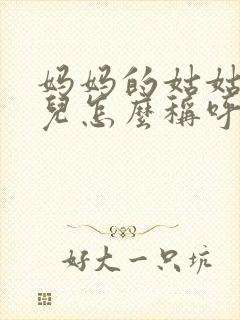 妈妈的姑姑
兒怎麼稱呼
好大一只坑